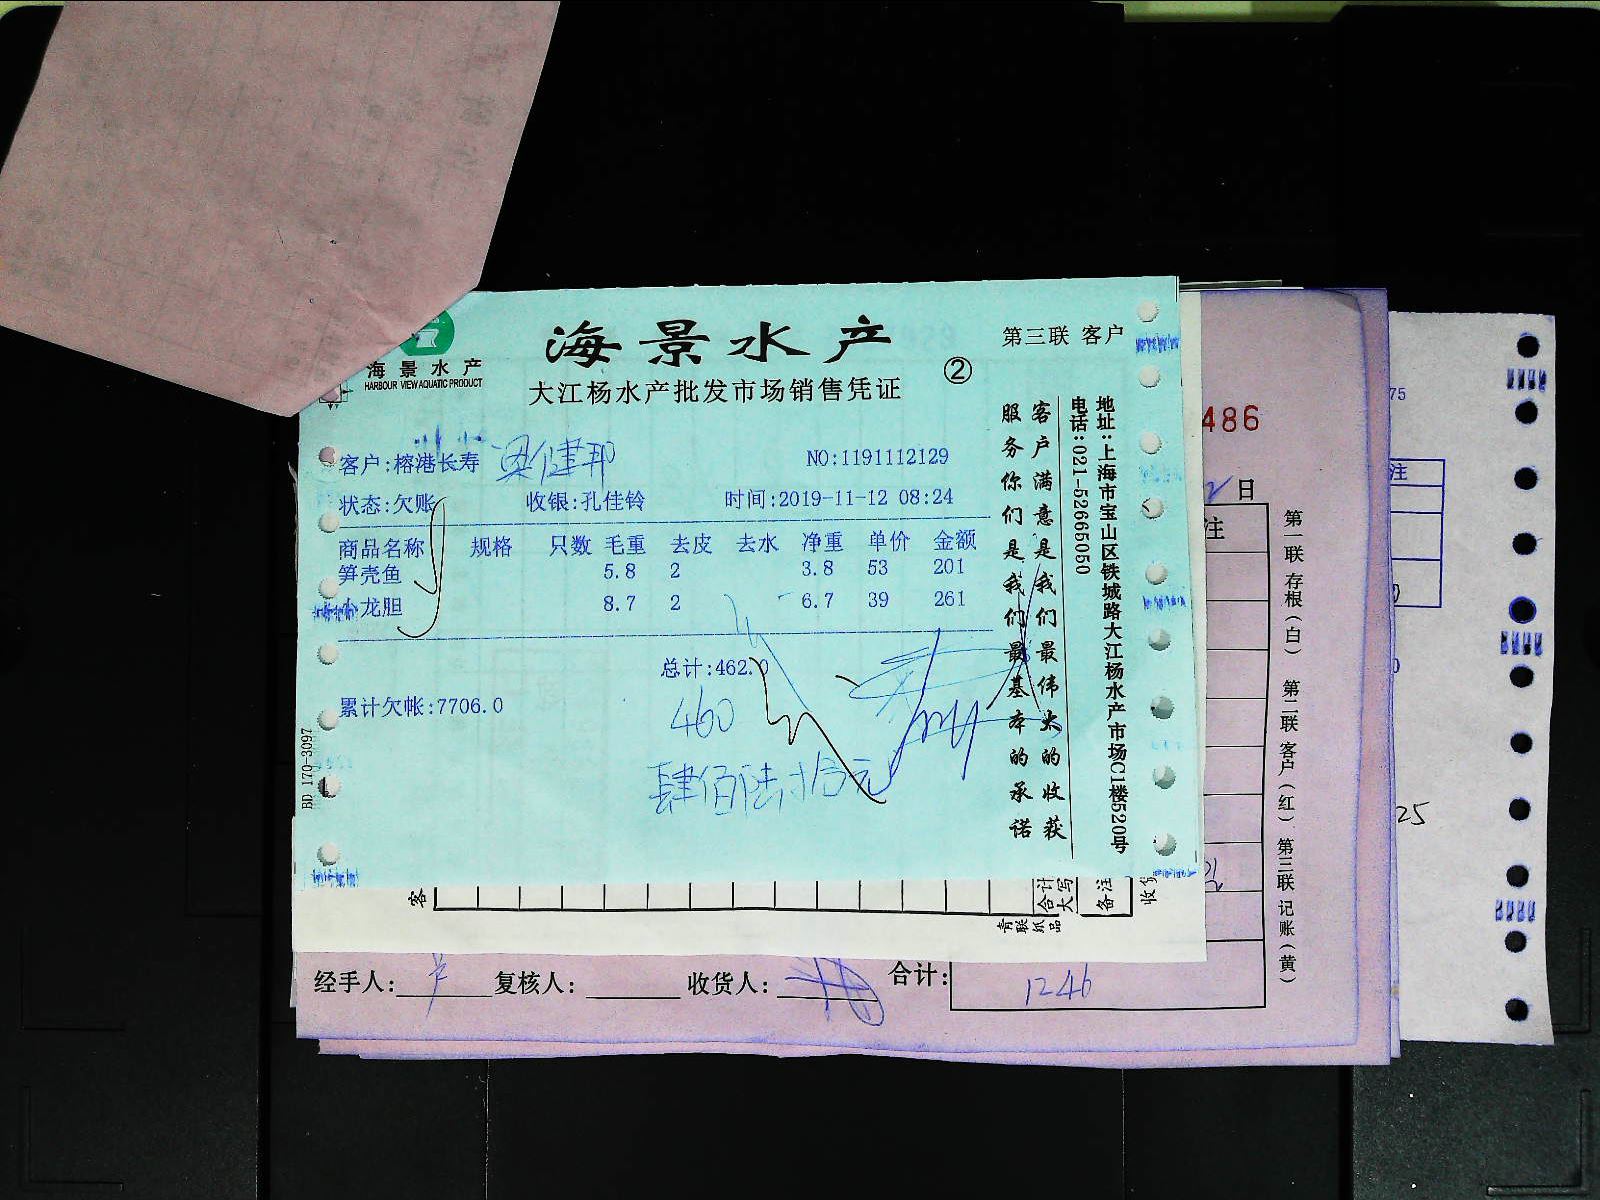 海景水产
HARBOUR VIEW AQUATIC PRODUCT
海景水产
大江杨水产批发市场销售凭证
②
第三联 客户
客户:榕港长寿 梁健邦
NO:1191112129
状态:欠账 收银:孔佳铃 时间:2019-11-12 08:24
商品名称 规格 只数 毛重 去皮 去水 净重 单价 金额
笋壳鱼 5.8 2 3.8 53 201
小龙胆 8.7 2 6.7 39 261
总计:462.0
累计欠帐:7706.0
460
肆佰陆拾元
BD 170-3097
客户满意是我们最伟大的收获
服务你们是我们最基本的承诺
地址:上海市宝山区铁城路大江杨水产市场C1楼520号
电话:021-52665050
486
2日
注
第一联 存根(白) 第二联 客户(红) 第三联 记账(黄)
75
注
25
客
合计大写
备注
收货
青联纸品
经手人: 复核人: 收货人: 合计: 1246